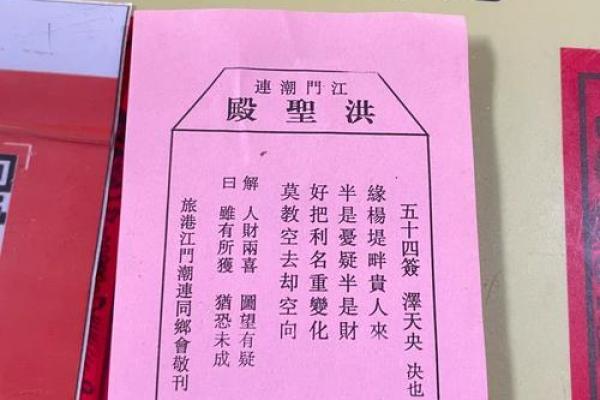 江門潮連
洪聖殿
五十四簽 澤天央 决也
緣楊堤畔貴人來
半是憂疑半是財
好把利名重變化
莫教空去却空向
解 人財兩喜 圖望有疑
曰 雖有所獲 猶恐未成
旅港江門潮連同鄉會敬刊